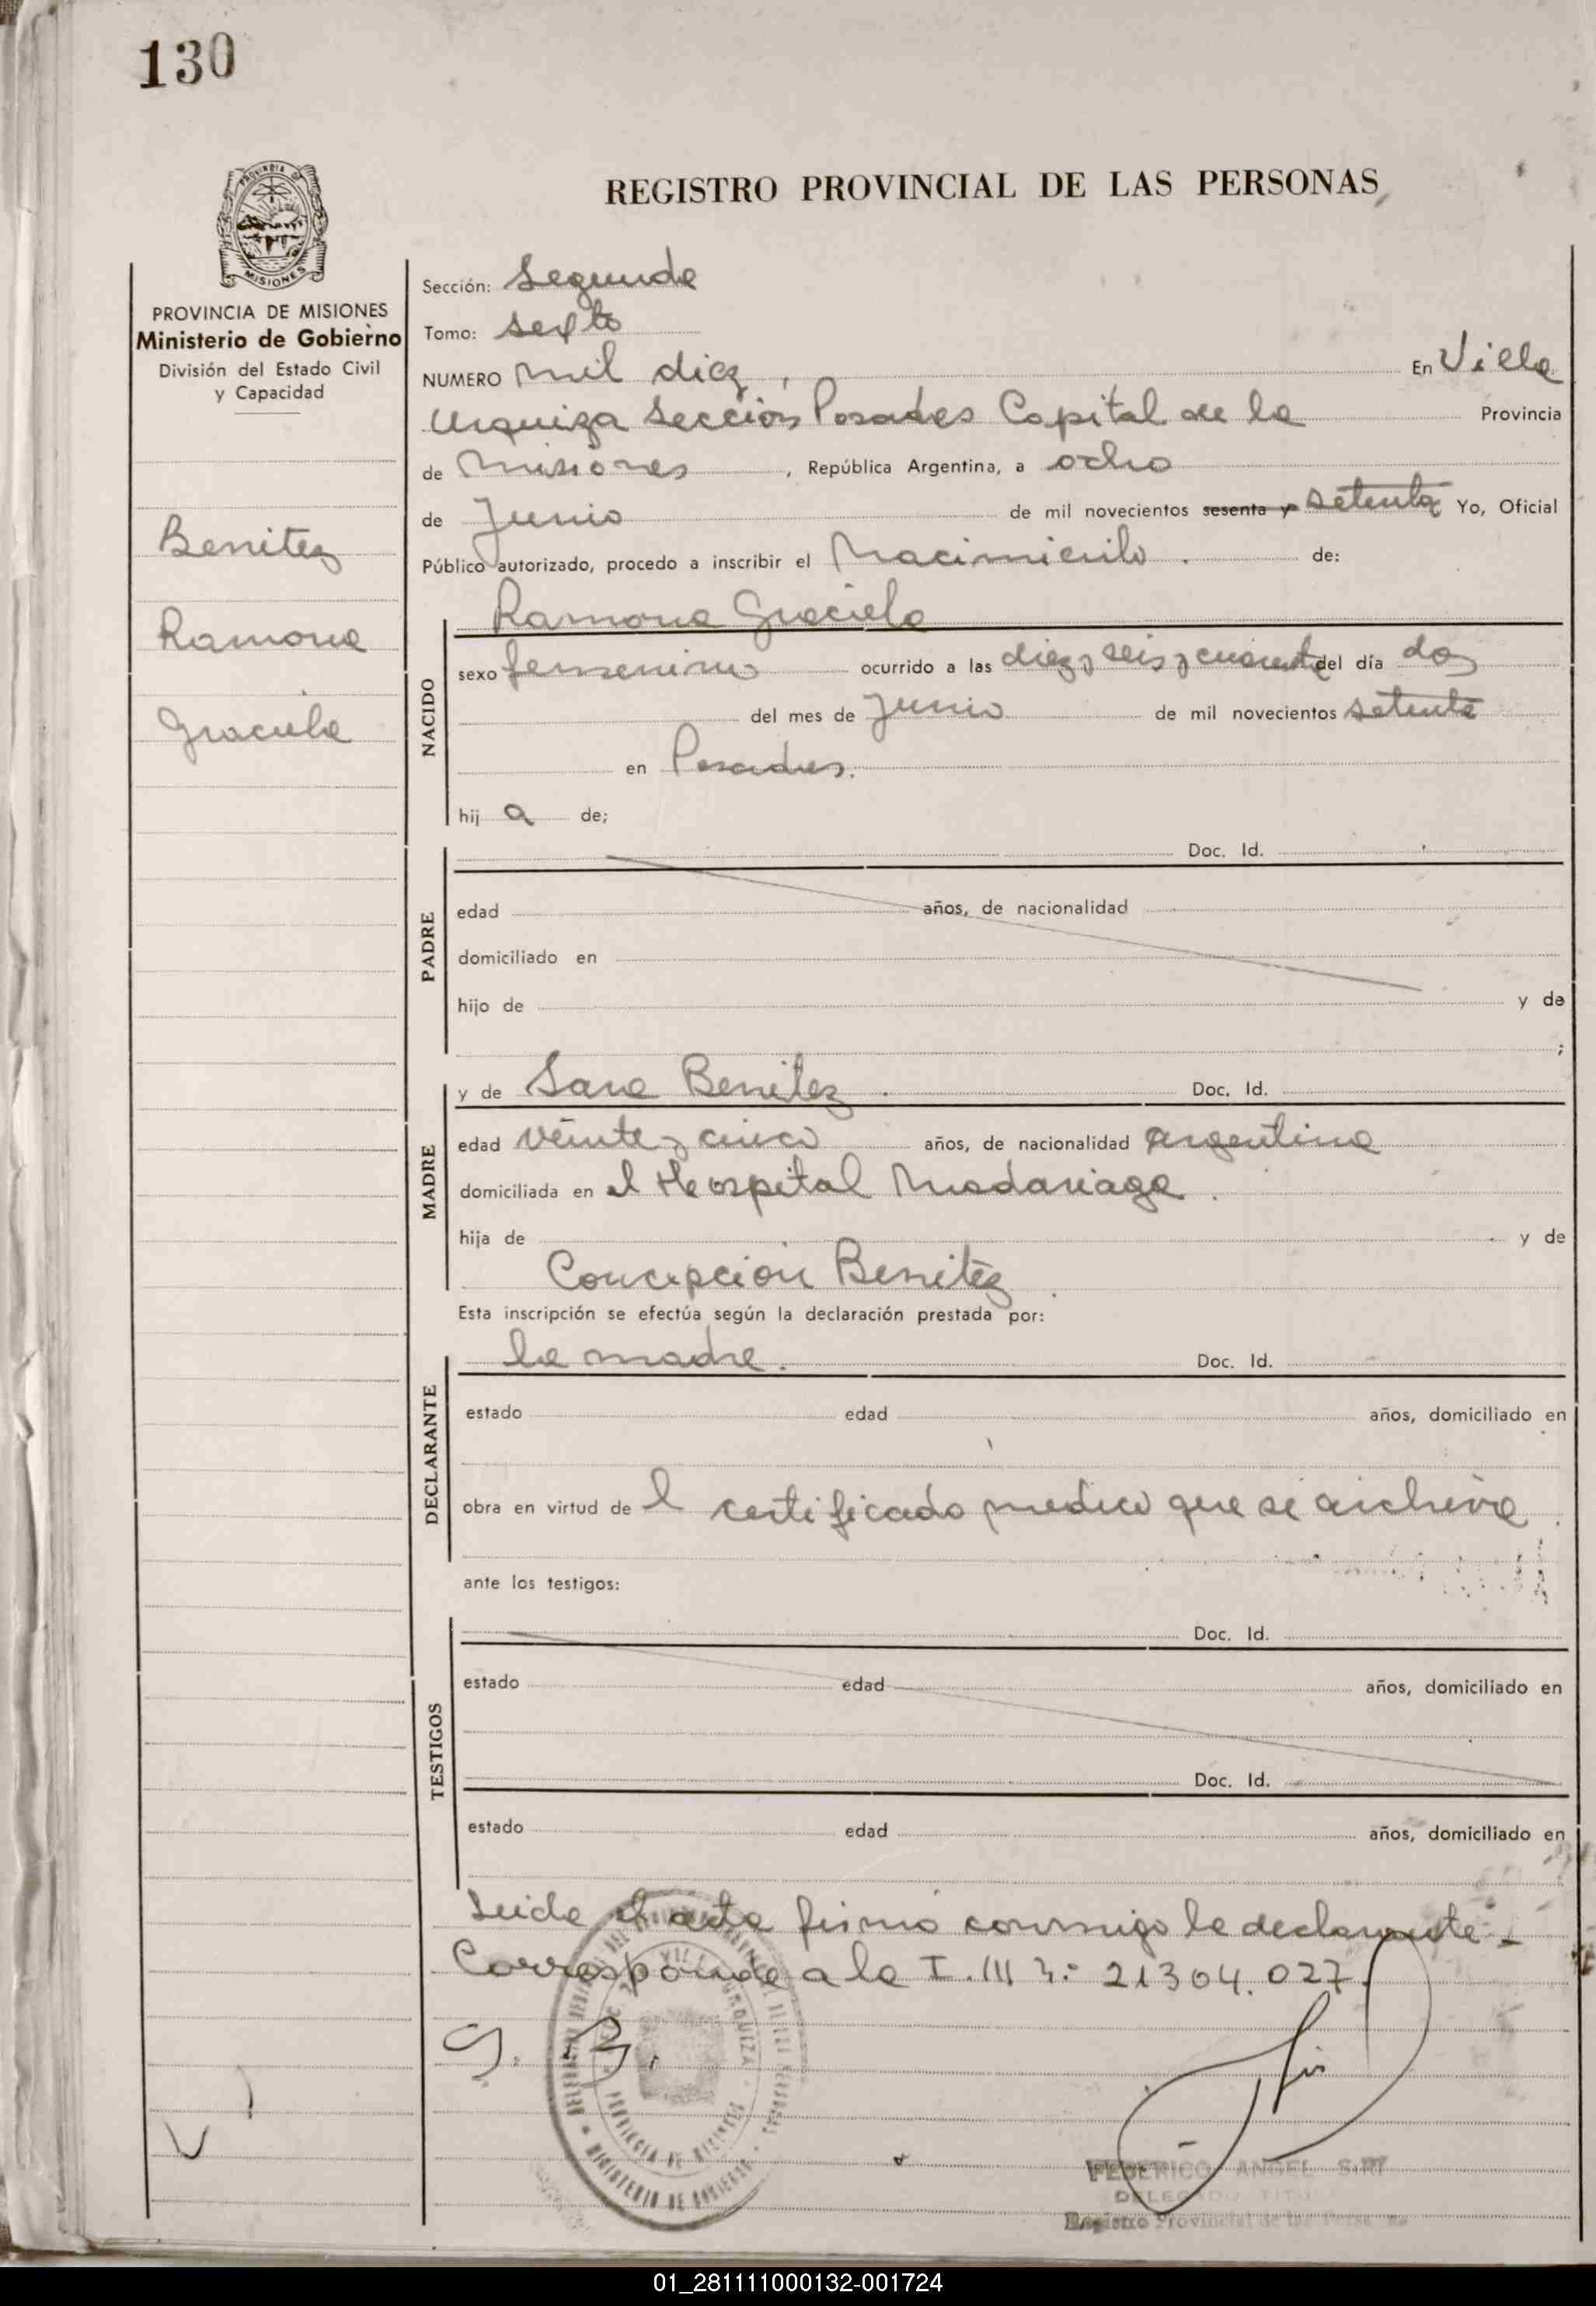 130
PROVINCIA DE
MISIONES
PROVINCIA DE MISIONES
Ministerio de Gobierno
División del Estado Civil
y Capacidad
Benitez
Ramona
Graciela
REGISTRO PROVINCIAL DE LAS PERSONAS
Sección: Segunda
Tomo: sexto
NUMERO mil diez, En Villa
Urquiza Sección Posadas Capital de la Provincia
de Misiones, República Argentina, a ocho
de Junio de mil novecientos sesenta y setenta Yo, Oficial
Público autorizado, procedo a inscribir el Nacimiento. de:
NACIDO
Ramona Graciela
sexo femenino ocurrido a las diez y seis y cuarenta del día dos
del mes de Junio de mil novecientos setenta
en Posadas.
hij a de;
PADRE
Doc. Id.
edad años, de nacionalidad
domiciliado en
hijo de y de
;
MADRE
y de Sara Benitez. Doc. Id.
edad veinte y cinco años, de nacionalidad argentina
domiciliada en el Hospital Madariaga.
hija de y de
Concepcion Benitez.
Esta inscripción se efectúa según la declaración prestada por:
DECLARANTE
la madre. Doc. Id.
estado edad años, domiciliado en
obra en virtud de l certificado medico que se archiva.
ante los testigos:
TESTIGOS
Doc. Id.
estado edad años, domiciliado en
Doc. Id.
estado edad años, domiciliado en
Leida el acta firmó conmigo la declarante-
Corresponde a la I. III 21304.027.
S. B.
URQUIZA
PROVINCIA DE MISIONES
MINISTERIO DE GOBIERNO
FEDERICO ANGEL
DELEGADO
Registro Provincial de las
01_281111000132-001724